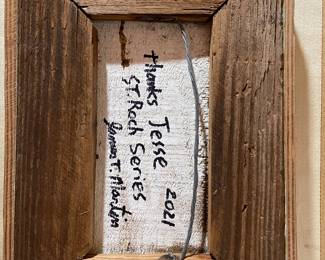 thanks Jesse 2021
ST. Roch Series
James T. Martin